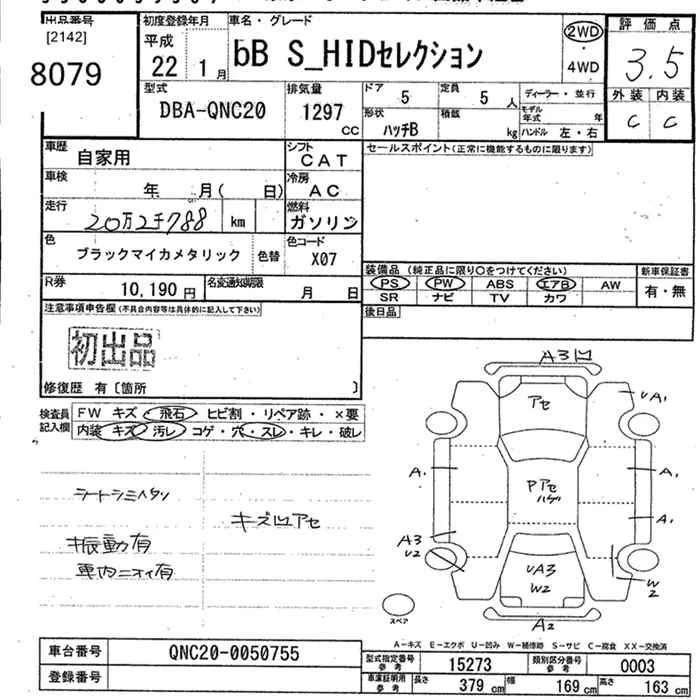 出品番号
[2142]
8079
初度登録年月
平成
22 1月
車名・グレード
bB S_HIDセレクション
2WD
4WD
評価点
3.5
外装 内装
C C
型式
DBA-QNC20
排気量
1297
cc
ドア
5
定員
5人
形状
ハッチB
積載
kg
ディーラー・並行
モデル年式 年
ハンドル 左・右
車歴
自家用
シフト
CAT
セールスポイント(正常に機能するものに限ります)
車検
年 月( 日)
冷房
AC
走行
20万2千788 km
燃料
ガソリン
色
ブラックマイカメタリック
色替
色コード
X07
R券
10,190円
名変通知期限
月 日
装備品(純正品に限り○をつけてください)
PS PW ABS エアB AW
SR ナビ TV カワ
新車保証書
有・無
後日品
注意事項申告欄(不具合内容等は具体的に記入して下さい)
初出品
修復歴 有〔箇所 〕
検査員記入欄
FW キズ・飛石・ヒビ割・リペア跡・×要
内装 キズ・汚レ・コゲ・穴・スレ・キレ・破レ
シートシミハタン
振動有
車内ニオイ有
キズ凹アセ
A3凹
アセ
UA1
A1
Pアセ
ハゲ
A1
A3
U2
UA3
W2
W2
A2
スペア
A-キズ E-エクボ U-凹み W-補修跡 S-サビ C-腐食 XX-交換済
車台番号
QNC20-0050755
登録番号
型式指定番号
参考
15273
類別区分番号
参考
0003
車庫証明用
参考
長さ 379cm 幅 169cm 高さ 163cm